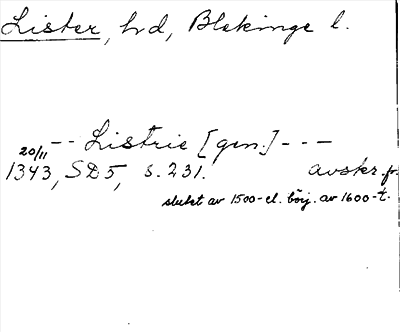 Lister, hd, Blekinge l.
-- Listrie [gen.] ---
20/11
1343, SD5, s. 231. avskr. fr.
slutet av 1500- el. börj. av 1600-t.